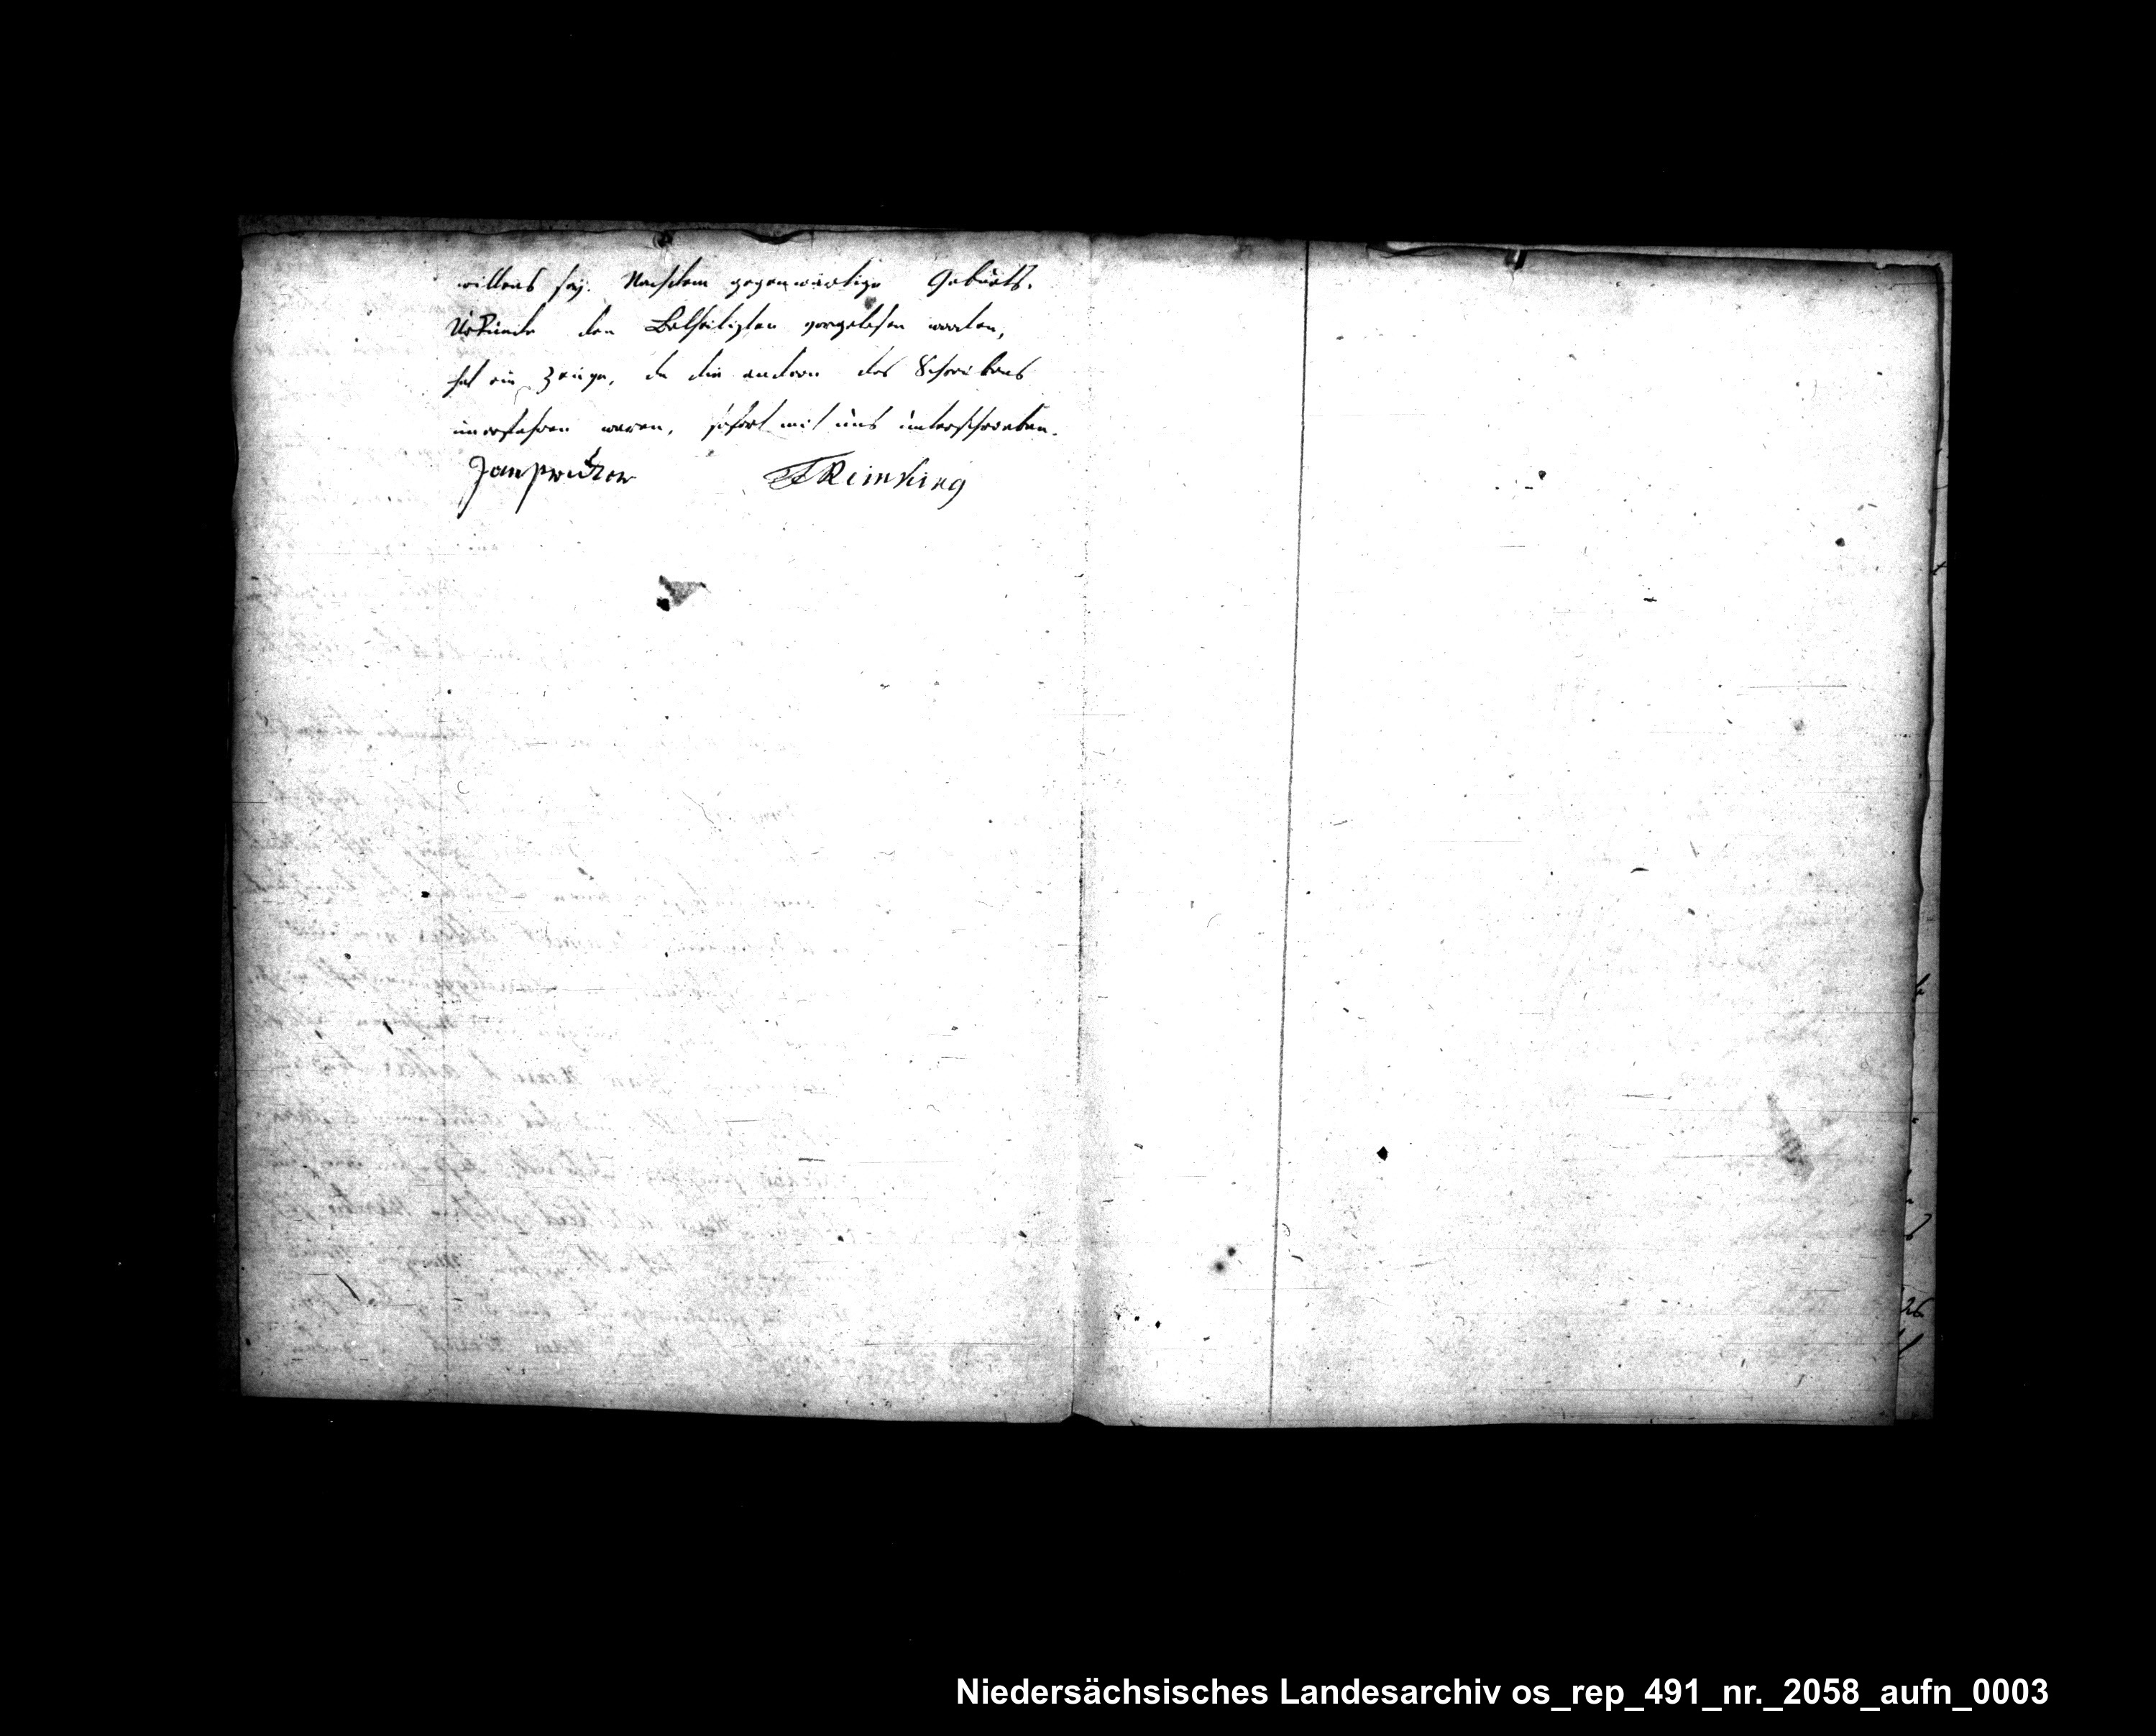 willens sey. Nachdem gegenwärtige Geburts-
Urkunde den Betheiligten vorgelesen worden,
hat ein Zeuge, da die andern des Schreibens
unerfahren waren, sofort mit uns unterschrieben.
Jan FReimking
Niedersächsisches Landesarchiv os_rep_491_nr._2058_aufn_0003